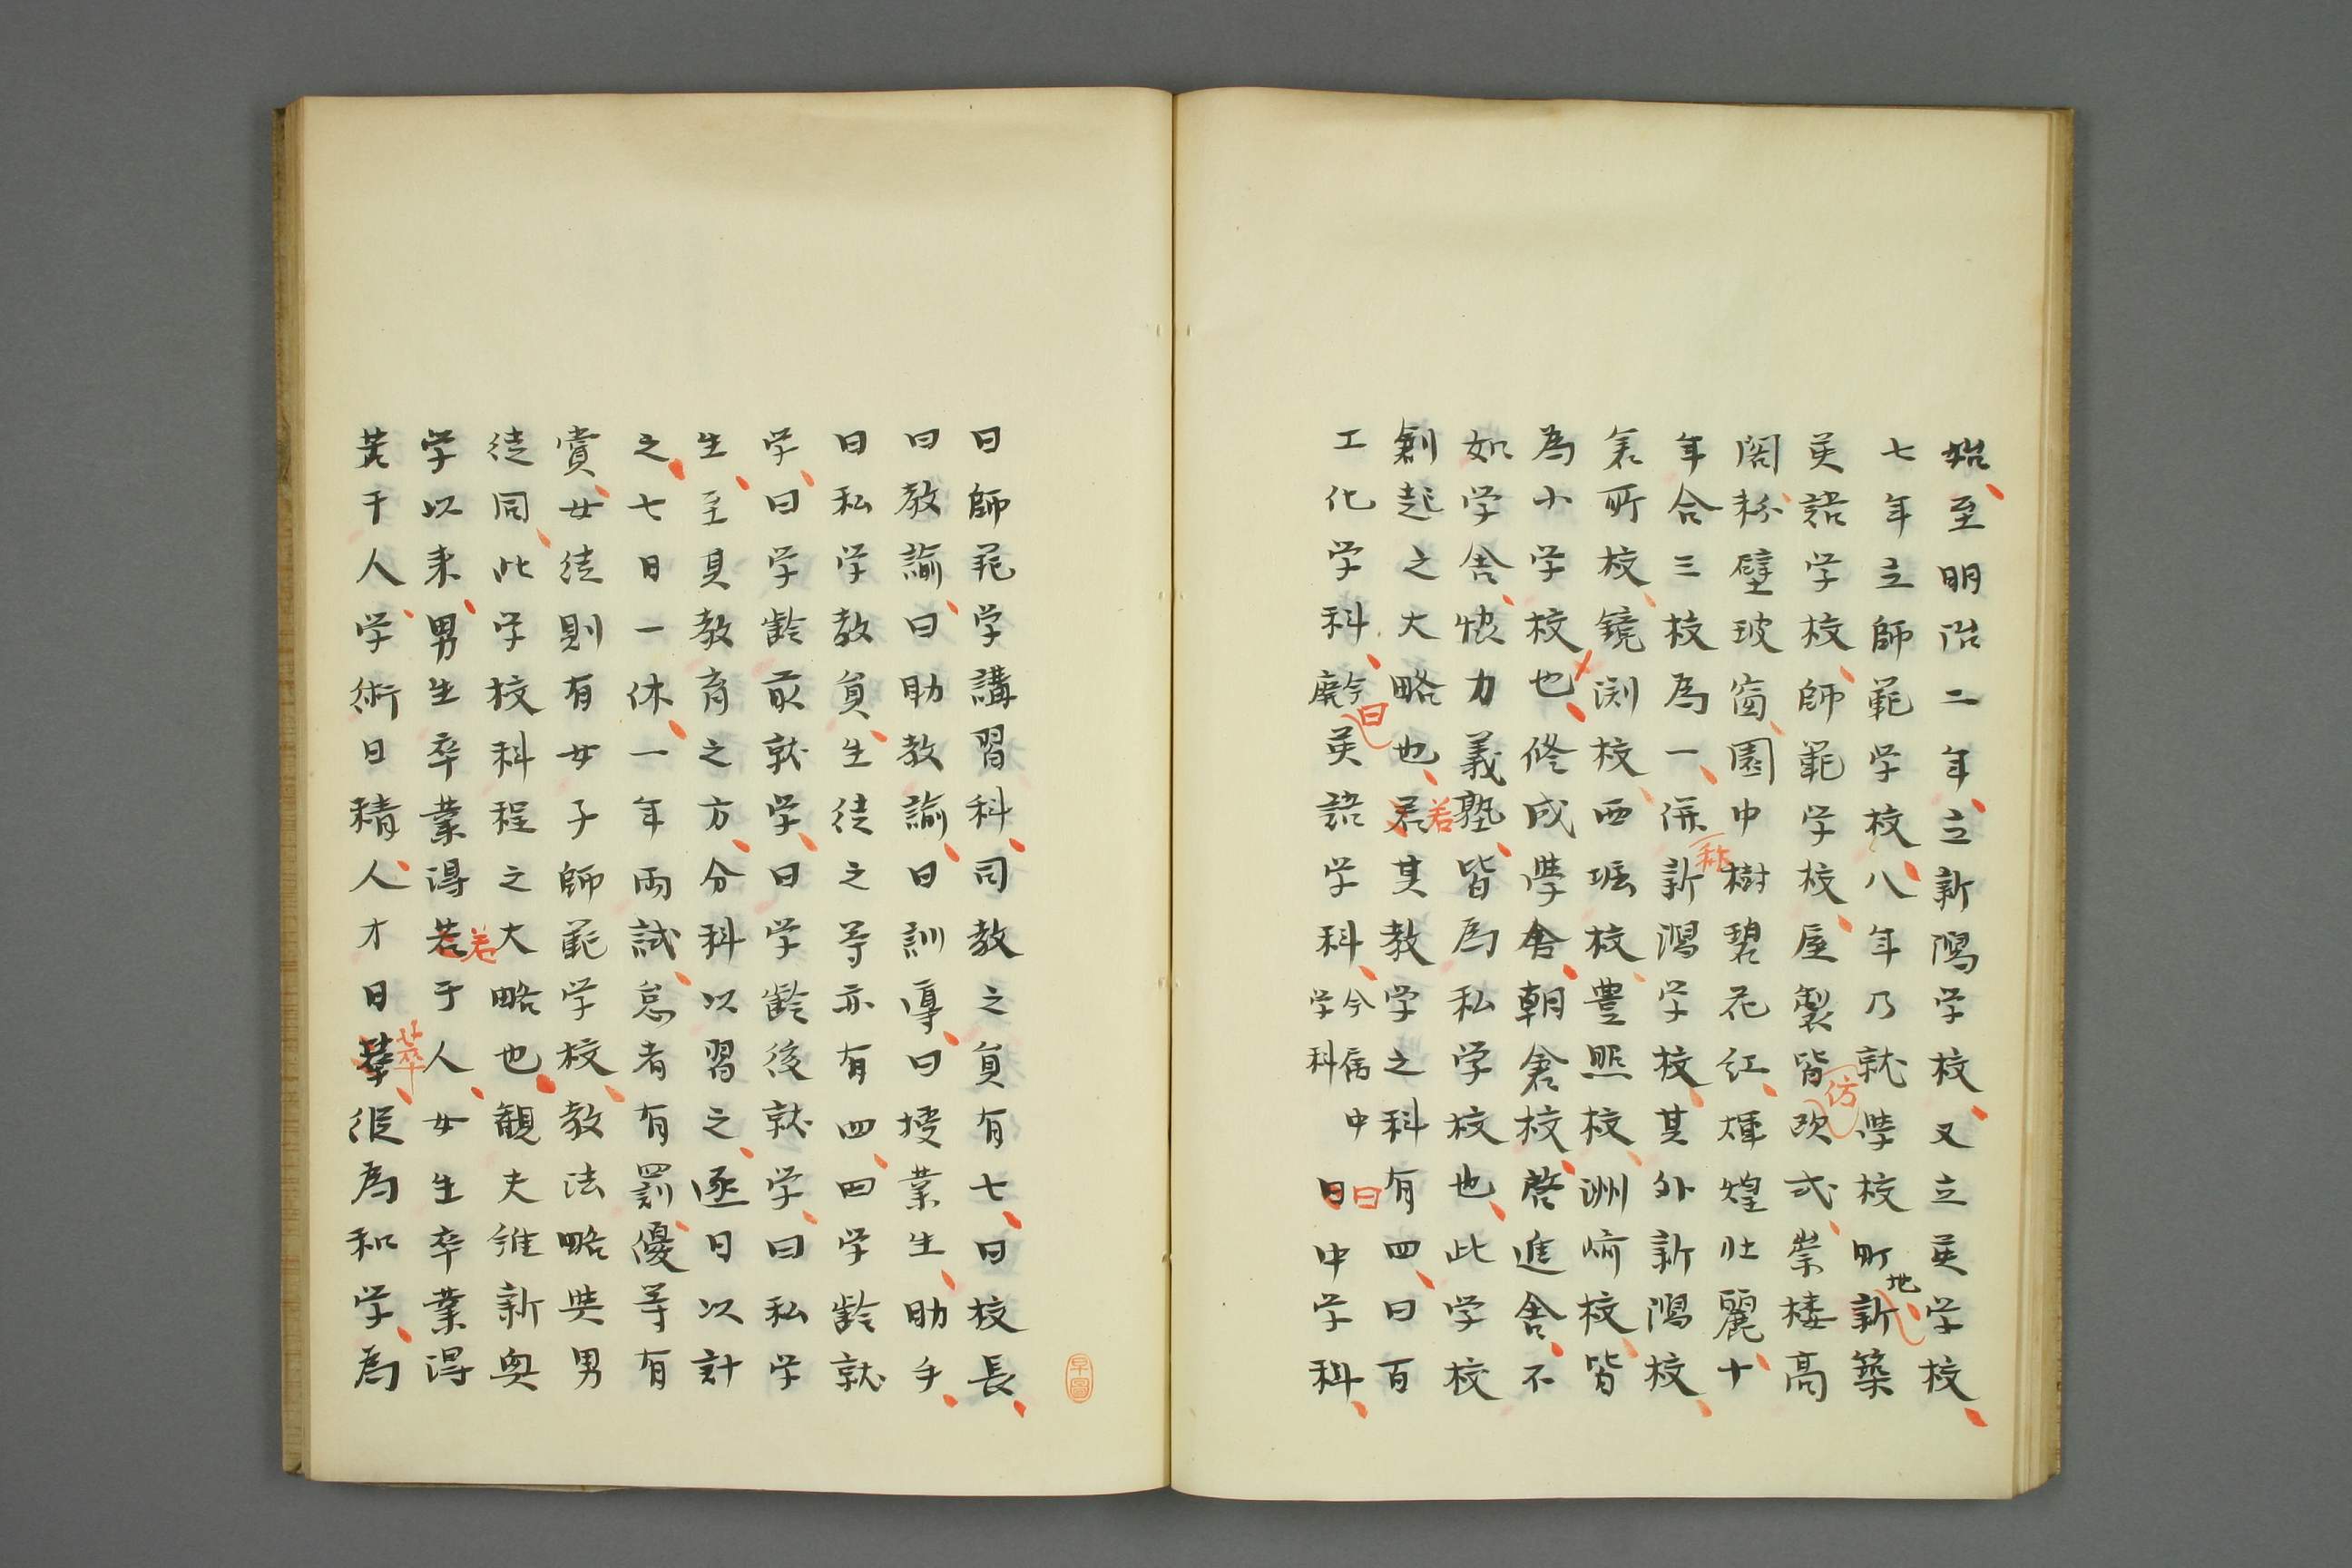 始至明治二年立新潟学校又立英学校
七年立師範学校八年乃就学校町地新築
英語学校師範学校屋製皆仿欧式崇楼高
閣粉壁玻窗園中樹碧花紅煇煌壮麗十
年合三校為一併称新潟学校其外新潟校
表町校鏡渕校西堀校豊照校洲崎校皆
為小学校也修成学舎朝倉校啓進舎不
如学舎慎力義塾皆為私学校也此学校
創起之大略也若其教学之科有四曰百
工化学科今廃曰英語学科今属中学科曰中学科
曰師範学講習科司教之員有七曰校長
曰教諭曰助教諭曰訓導曰授業生助手
曰私学教員生徒之等亦有四曰学齢就
学曰学齢前就学曰学齢後就学曰私学
生至其教育之方分科以習之逐日以計
之七日一休一年両試怠者有罰優等有
賞女徒則有女子師範学校教法略與男
徒同此学校科程之大略也観夫維新興
学以来男生卒業得若干人女生卒業得
若干人学術日精人才日萃從為和学為
早圖